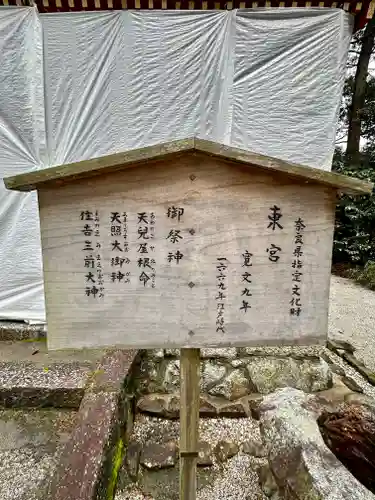 奈良県指定文化財
東宮
寛文九年
一六六九年江戸時代
御祭神
天兒屋根命
天照大御神
住吉三前大神